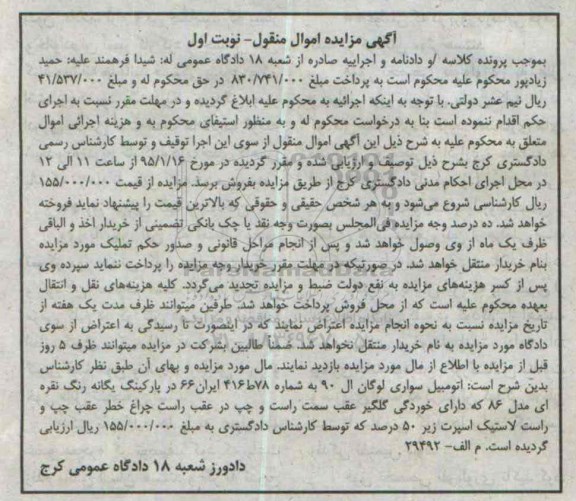 آگهی مزایده اموال منقول- نوبت اول
بموجب پرونده کلاسه /و دادنامه و اجراییه صادره از شعبه ۱۸ دادگاه عمومی له: شیدا فرهمند علیه: حمید
زیادپور محکوم علیه محکوم است به پرداخت مبلغ ۸۳۰/۷۴۱/۰۰۰ در حق محکوم له و مبلغ ۴۱/۵۳۷/۰۰۰
ریال نیم عشر دولتی. با توجه به اینکه اجرائیه به محکوم علیه ابلاغ گردیده و در مهلت مقرر نسبت به اجرای
حکم اقدام ننموده است بنا به درخواست محکوم له و به منظور استیفای محکوم به و هزینه اجرائی اموال
متعلق به محکوم علیه به شرح ذیل این آگهی اموال منقول از سوی این اجرا توقیف و توسط کارشناس رسمی
دادگستری کرج بشرح ذیل توصیف و ارزیابی شده و مقرر گردیده در مورخ ۹۵/۱/۱۶ از ساعت ۱۱ الی ۱۲
در محل اجرای احکام مدنی دادگستری کرج از طریق مزایده بفروش برسد. مزایده از قیمت ۱۵۵/۰۰۰/۰۰۰
ریال کارشناسی شروع می‌شود و به هر شخص حقیقی و حقوقی که بالاترین قیمت را پیشنهاد نماید فروخته
خواهد شد. ده درصد وجه مزایده فی‌المجلس بصورت وجه نقد یا چک بانکی تضمینی از خریدار اخذ و الباقی
ظرف یک ماه از وی وصول خواهد شد و پس از انجام مراحل قانونی و صدور حکم تملیک مورد مزایده
بنام خریدار منتقل خواهد شد. در صورتیکه در مهلت مقرر خریدار وجه مزایده را پرداخت ننماید سپرده وی
پس از کسر هزینه‌های مزایده به نفع دولت ضبط و مزایده تجدید می‌گردد. کلیه هزینه‌های نقل و انتقال
بعهده محکوم علیه است که از محل فروش پرداخت خواهد شد. طرفین میتوانند ظرف مدت یک هفته از
تاریخ مزایده نسبت به نحوه انجام مزایده اعتراض نمایند که در اینصورت تا رسیدگی به اعتراض از سوی
دادگاه مورد مزایده به نام خریدار منتقل نخواهد شد. ضمناً طالبین بشرکت در مزایده میتوانند ظرف ۵ روز
قبل از مزایده با اطلاع از مال مورد مزایده بازدید نمایند. مال مورد مزایده و بهای آن طبق نظر کارشناس
بدین شرح است: اتومبیل سواری لوگان ال ۹۰ به شماره ۷۸ط۴۱۶ ایران۶۶ در پارکینگ یگانه رنگ نقره
ای مدل ۸۶ که دارای خوردگی گلگیر عقب سمت راست و چپ در عقب راست چراغ خطر عقب چپ و
راست لاستیک اسپرت زیر ۵۰ درصد که توسط کارشناس دادگستری به مبلغ ۱۵۵/۰۰۰/۰۰۰ ریال ارزیابی
گردیده است. م الف- ۲۹۴۹۲
دادورز شعبه ۱۸ دادگاه عمومی کرج